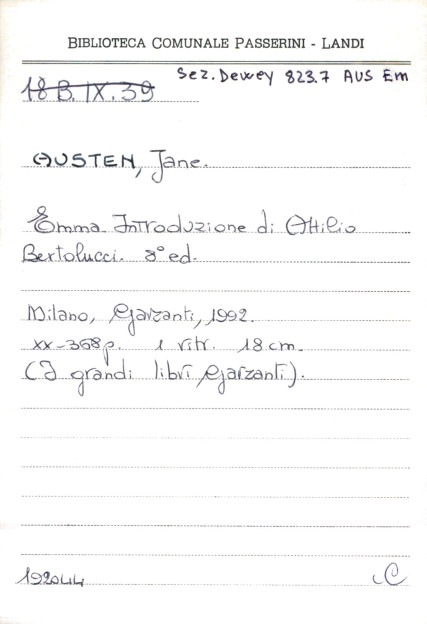 BIBLIOTECA COMUNALE PASSERINI - LANDI
Sez. Dewey 823.7 AUS Em
18 B. IX. 39
AUSTEN, Jane.
Emma. Introduzione di Attilio
Bertolucci. 8° ed.
Milano, Garzanti, 1992.
xx-368 p. 1 ritr. 18 cm.
(I grandi libri Garzanti).
192044 C